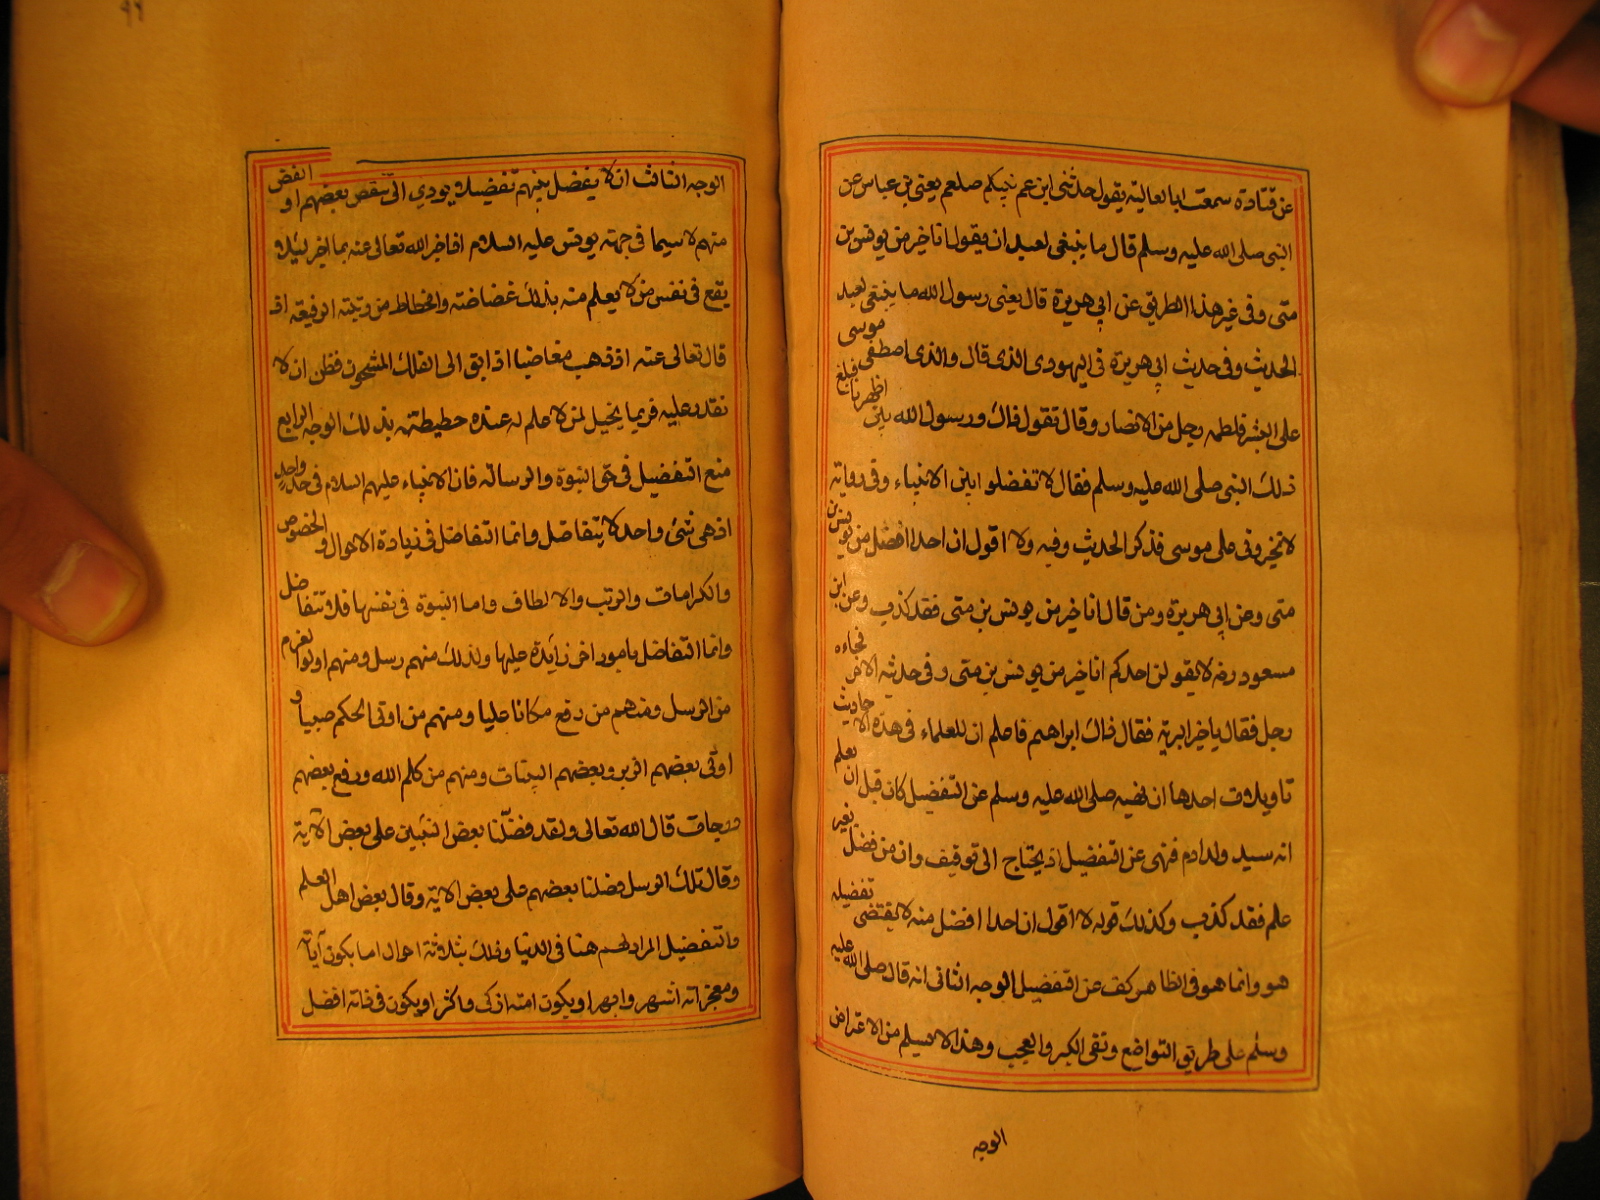 عن قتادة سمعت ابا العالية يقول حدثنى ابن عم نبيكم صلعم يعنى بن عباس عن
النبى صلى الله عليه وسلم قال ما ينبغى لعبد ان يقول انا خير من يونس بن
متى وفى غير هذا الطريق عن ابى هريرة قال يعنى رسول الله ما ينبغى لعبد
الحديث وفى حديث ابى هريرة فى اليهودى الذى قال والذى اصطفى موسى
على البشر فلطمه رجل من الانصار وقال تقول ذلك ورسول الله بين اظهرنا فبلغ
ذلك النبى صلى الله عليه وسلم فقال لا تفضلوا بين الانبياء وفى رواية
لا تخيرونى على موسى فذكر الحديث وفيه ولا اقول ان احدا افضل من يونس بن
متى وعن ابى هريرة ومن قال انا خير من يونس بن متى فقد كذب وعن ابن
مسعود رضه لا يقولن احدكم انا خير من يونس بن متى وفى حديثه الاخر فجاءه
رجل فقال يا خير البرية فقال ذاك ابراهيم فاعلم ان للعلماء فى هذه الاحاديث
تاويلات احدها ان نهيه صلى الله عليه وسلم عن التفضيل كان قبل ان يعلم
انه سيد ولد ادم فنهى عن التفضيل اذ يحتاج الى توقيف وان من فضل بغير
علم فقد كذب وكذلك قوله لا اقول ان احدا افضل منه لا يقتضى تفضيله
هو وانما هو فى الظاهر كف عن التفضيل الوجه الثانى انه قال صلى الله عليه
وسلم على طريق التواضع ونفى الكبر والعجب وهذا لا يسلم من الاعتراض
الوجه
٩٦
الوجه الثالث ان لا يفضل بينهم تفضيلا يودي الى تنقص بعضهم او الغض
منهم لا سيما فى جهة يونس عليه السلام اذ اخبر الله تعالى عنه بما اخبر ليلا
يقع فى نفس من لا يعلم منه بذلك غضاضة وانحطاط من رتبته الرفيعة اذ
قال تعالى عنه اذ ذهب مغاضبا اذ ابق الى الفلك المشحون فظن ان لا
نقدر عليه فربما يخيل لمن لا علم له عنده حطيطته بذلك الوجه الرابع
منع التفضيل فى حق النبوة والرسالة فان الانبياء عليهم السلام فى حد واحد
اذ هى شئ واحد لا يتفاضل وانما التفاضل فى زيادة الاحوال والخصوص
والكرامات والرتب والالطاف واما النبوة فى نفسها فلا تتفاضل
وانما التفاضل بامور اخر زايدة عليها ولذلك منهم رسل ومنهم اولوا لعزم
من الرسل ومنهم من رفع مكانا عليا ومنهم من اوتى الحكم صبيا و
اوتى بعضهم الزبر وبعضهم البينات ومنهم من كلم الله ورفع بعضهم
درجات قال الله تعالى ولقد فضلنا بعض النبين على بعض الآية
وقال تلك الرسل فضلنا بعضهم على بعض الاية وقال بعض اهل العلم
والتفضيل المراد لهم هنا فى الدنيا وذلك بثلاثة احوال اما بكون آياته
ومعجزاته اشهر وابهر او يكون امته ازكى واكثر او يكون فى ذاته افضل